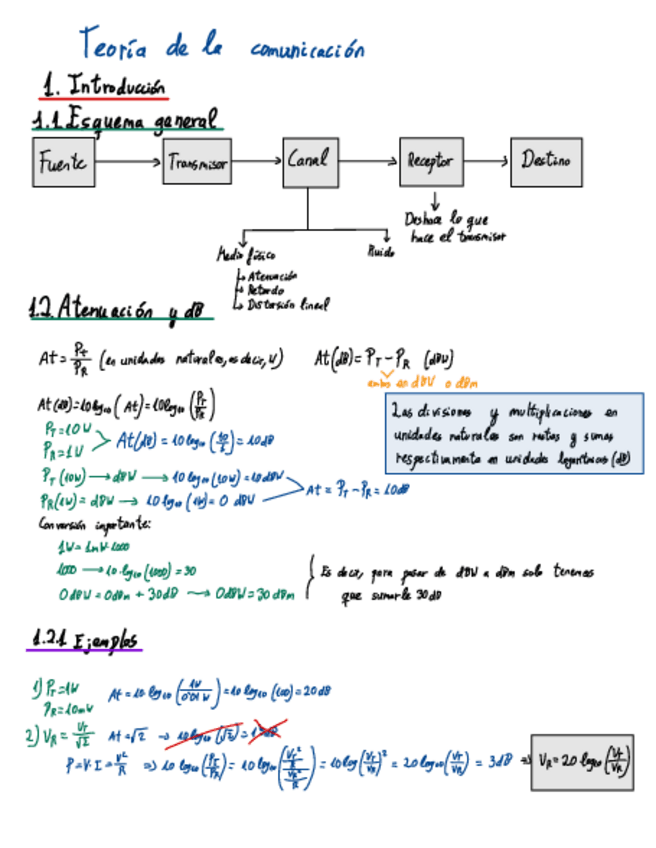 Teoría de la comunicación
1. Introducción
1.1 Esquema general
Fuente Transmisor Canal Receptor Destino
Deshace lo que
hace el transmisor
Medio físico Ruido
↳ Atenuación
↳ Retardo
↳ Distorsión lineal
1.2. Atenuación y dB
At = P_T/P_R (en unidades naturales, es decir, W) At(dB) = P_T - P_R (dBW)
ambos en dBW o dBm
At(dB) = 10 log₁₀(At) = 10 log₁₀(P_T/P_R)
Las divisiones y multiplicaciones en
unidades naturales son restas y sumas
respectivamente en unidades logarítmicas (dB)
P_T = 10W
P_R = 1W
At(dB) = 10 log₁₀(10/1) = 10dB
P_T(10W) → dBW → 10 log₁₀(10W) = 10dBW
P_R(1W) = dBW → 10 log₁₀(1W) = 0 dBW
At = P_T - P_R = 10dB
Conversión importante:
1W = 1mW·1000
1000 → 10·log₁₀(1000) = 30
0dBW = 0dBm + 30dB → 0dBW = 30dBm
Es decir, para pasar de dBW a dBm solo tenemos
que sumarle 30dB
1.2.1 Ejemplos
1) P_T = 1W
P_R = 10mW
At = 10·log₁₀(1W/0'01W) = 10 log₁₀(100) = 20dB
2) V_R = V_T/√2 At = √2 → 10 log₁₀(√2) = 1'5dB
P = V·I = V²/R ⇒ 10 log₁₀(P_T/P_R) = 10 log₁₀((V_T²/R)/(V_R²/R)) = 10 log(V_T/V_R)² = 20 log₁₀(V_T/V_R) = 3dB ⇒ V_R = 20 log₁₀(V_T/V_R)